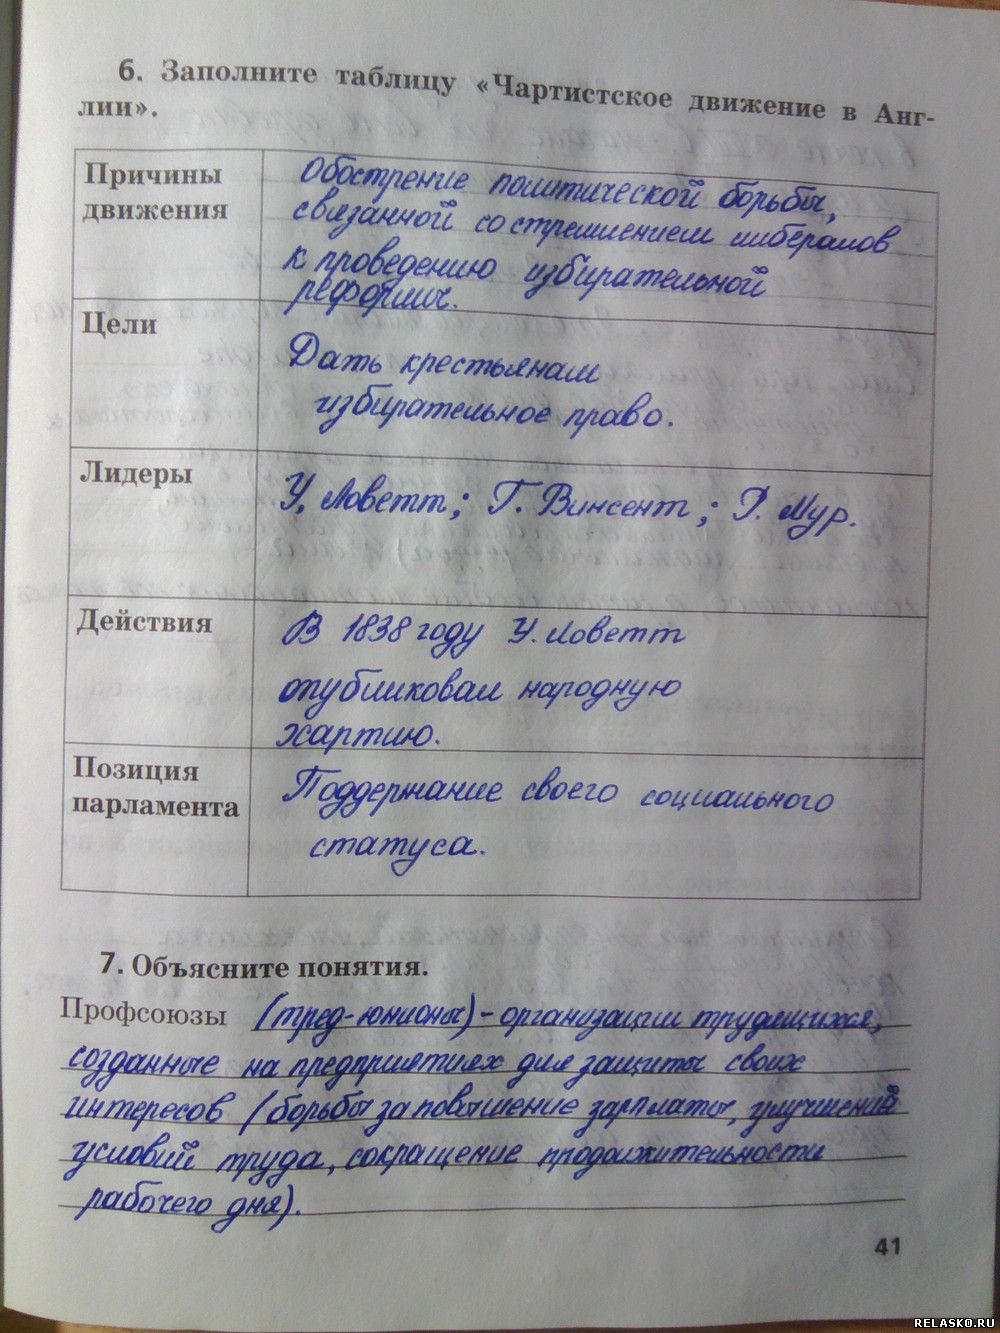 6. Заполните таблицу «Чартистское движение в Анг-
лии».
Причины
движения
Обострение политической борьбы,
связанной со стремлением либералов
к проведению избирательной
реформы.
Цели
Дать крестьянам
избирательное право.
Лидеры
У. Ловетт; Г. Винсент; Р. Мур.
Действия
В 1838 году У. Ловетт
опубликовал народную
хартию.
Позиция
парламента
Поддержание своего социального
статуса.
7. Объясните понятия.
Профсоюзы (тред-юнионы) - организации трудящихся,
созданные на предприятиях для защиты своих
интересов (борьбы за повышение зарплаты, улучшений
условий труда, сокращение продолжительности
рабочего дня).
41
RELASKO.RU